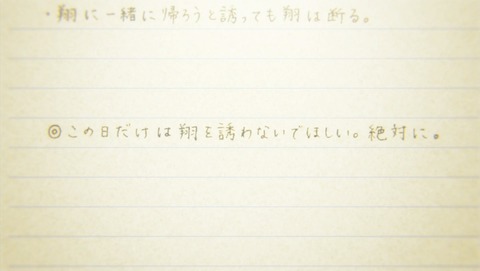 ・翔に一緒に帰ろうと誘っても翔は断る。
◎この日だけは翔を誘わないでほしい。絶対に。